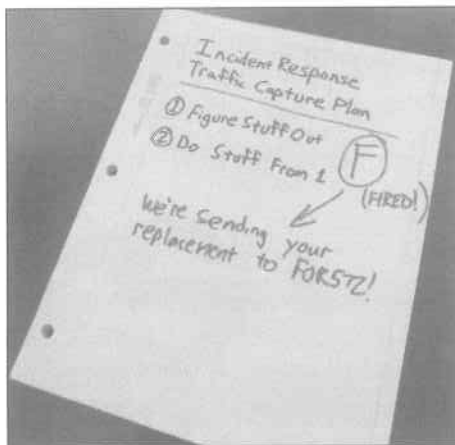 Incident Response
Traffic Capture Plan
① Figure Stuff Out
② Do Stuff From 1
F
(FIRED!)
We're sending your
replacement to FOR572!